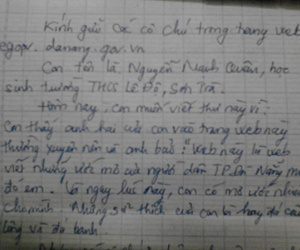 Kính gửi các cô chú trong trang web
egov.danang.gov.vn
Con tên là Nguyễn Mạnh Quân, học
sinh trường THCS Lê Độ, Sơn Trà.
Hôm nay, con muốn viết thư này vì
con thấy anh hai của con vào trang web này
thường xuyên nên và anh bảo: "Web này là web
viết những ước mơ của người dân TP. Đà Nẵng mà
đó em. Và ngay lúc này, con có mơ ước như
cho mình. Những sở thích của con là hay đá cầu
lông và đá banh.